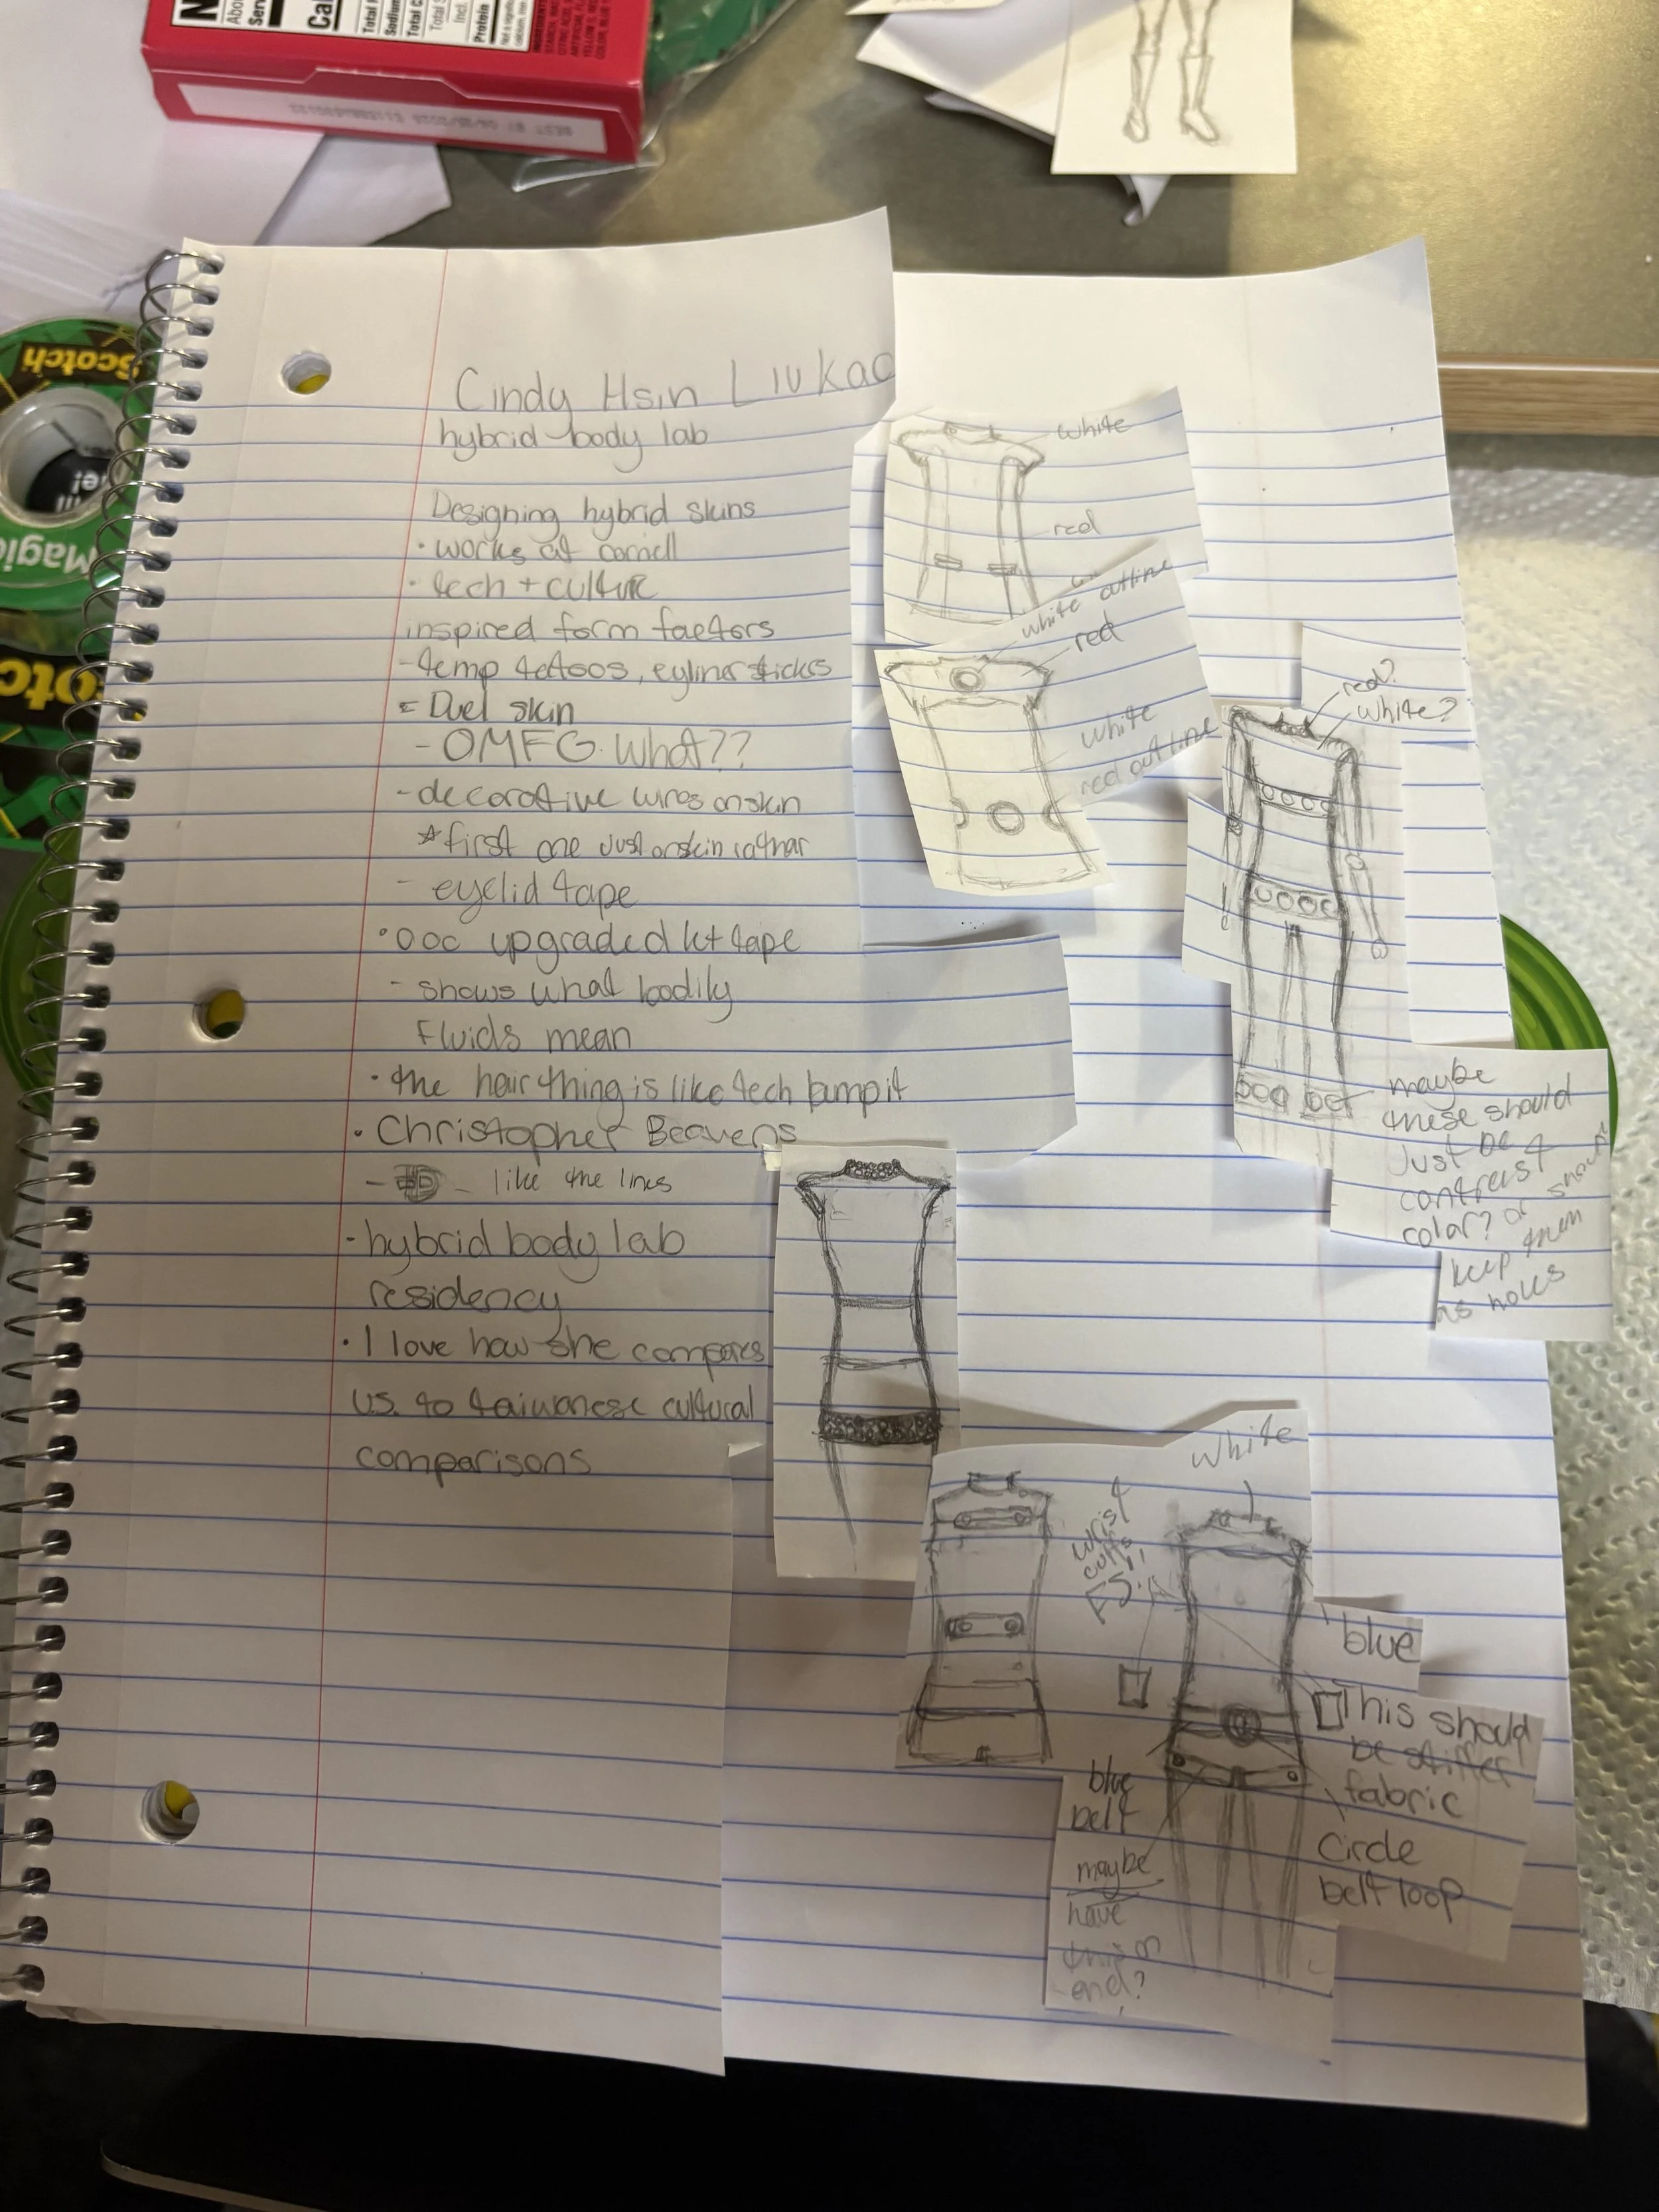 Scotch
Magic
Cindy Hsin Liukao
hybrid body lab
Designing hybrid skins
• works at cornell
• tech + culture
inspired form factors
- temp tattoos, eyliner sticks
= Duel skin
- OMFG. What??
- decorative wires on skin
☆ first one just on skin rathar
- eyelid tape
• ooc upgraded kt tape
- shows what bodily
fluids mean
• the hair thing is like tech bump it
• Christopher Beavens
- like the lines
- hybrid body lab
residency
• I love how she compares
U.S. to taiwanese cultural
comparisons
white
red
white outline
red
white
red outline
red?
white?
maybe
these should
just be 4
contrast
color? or should
keep them
as holes
white
wrist
cuffs
blue
This should
be stiffer
fabric
Circle
belt loop
blue
belt
maybe
have
this on
end?